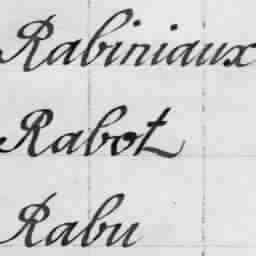 Rabiniaux
Rabot
Rabu